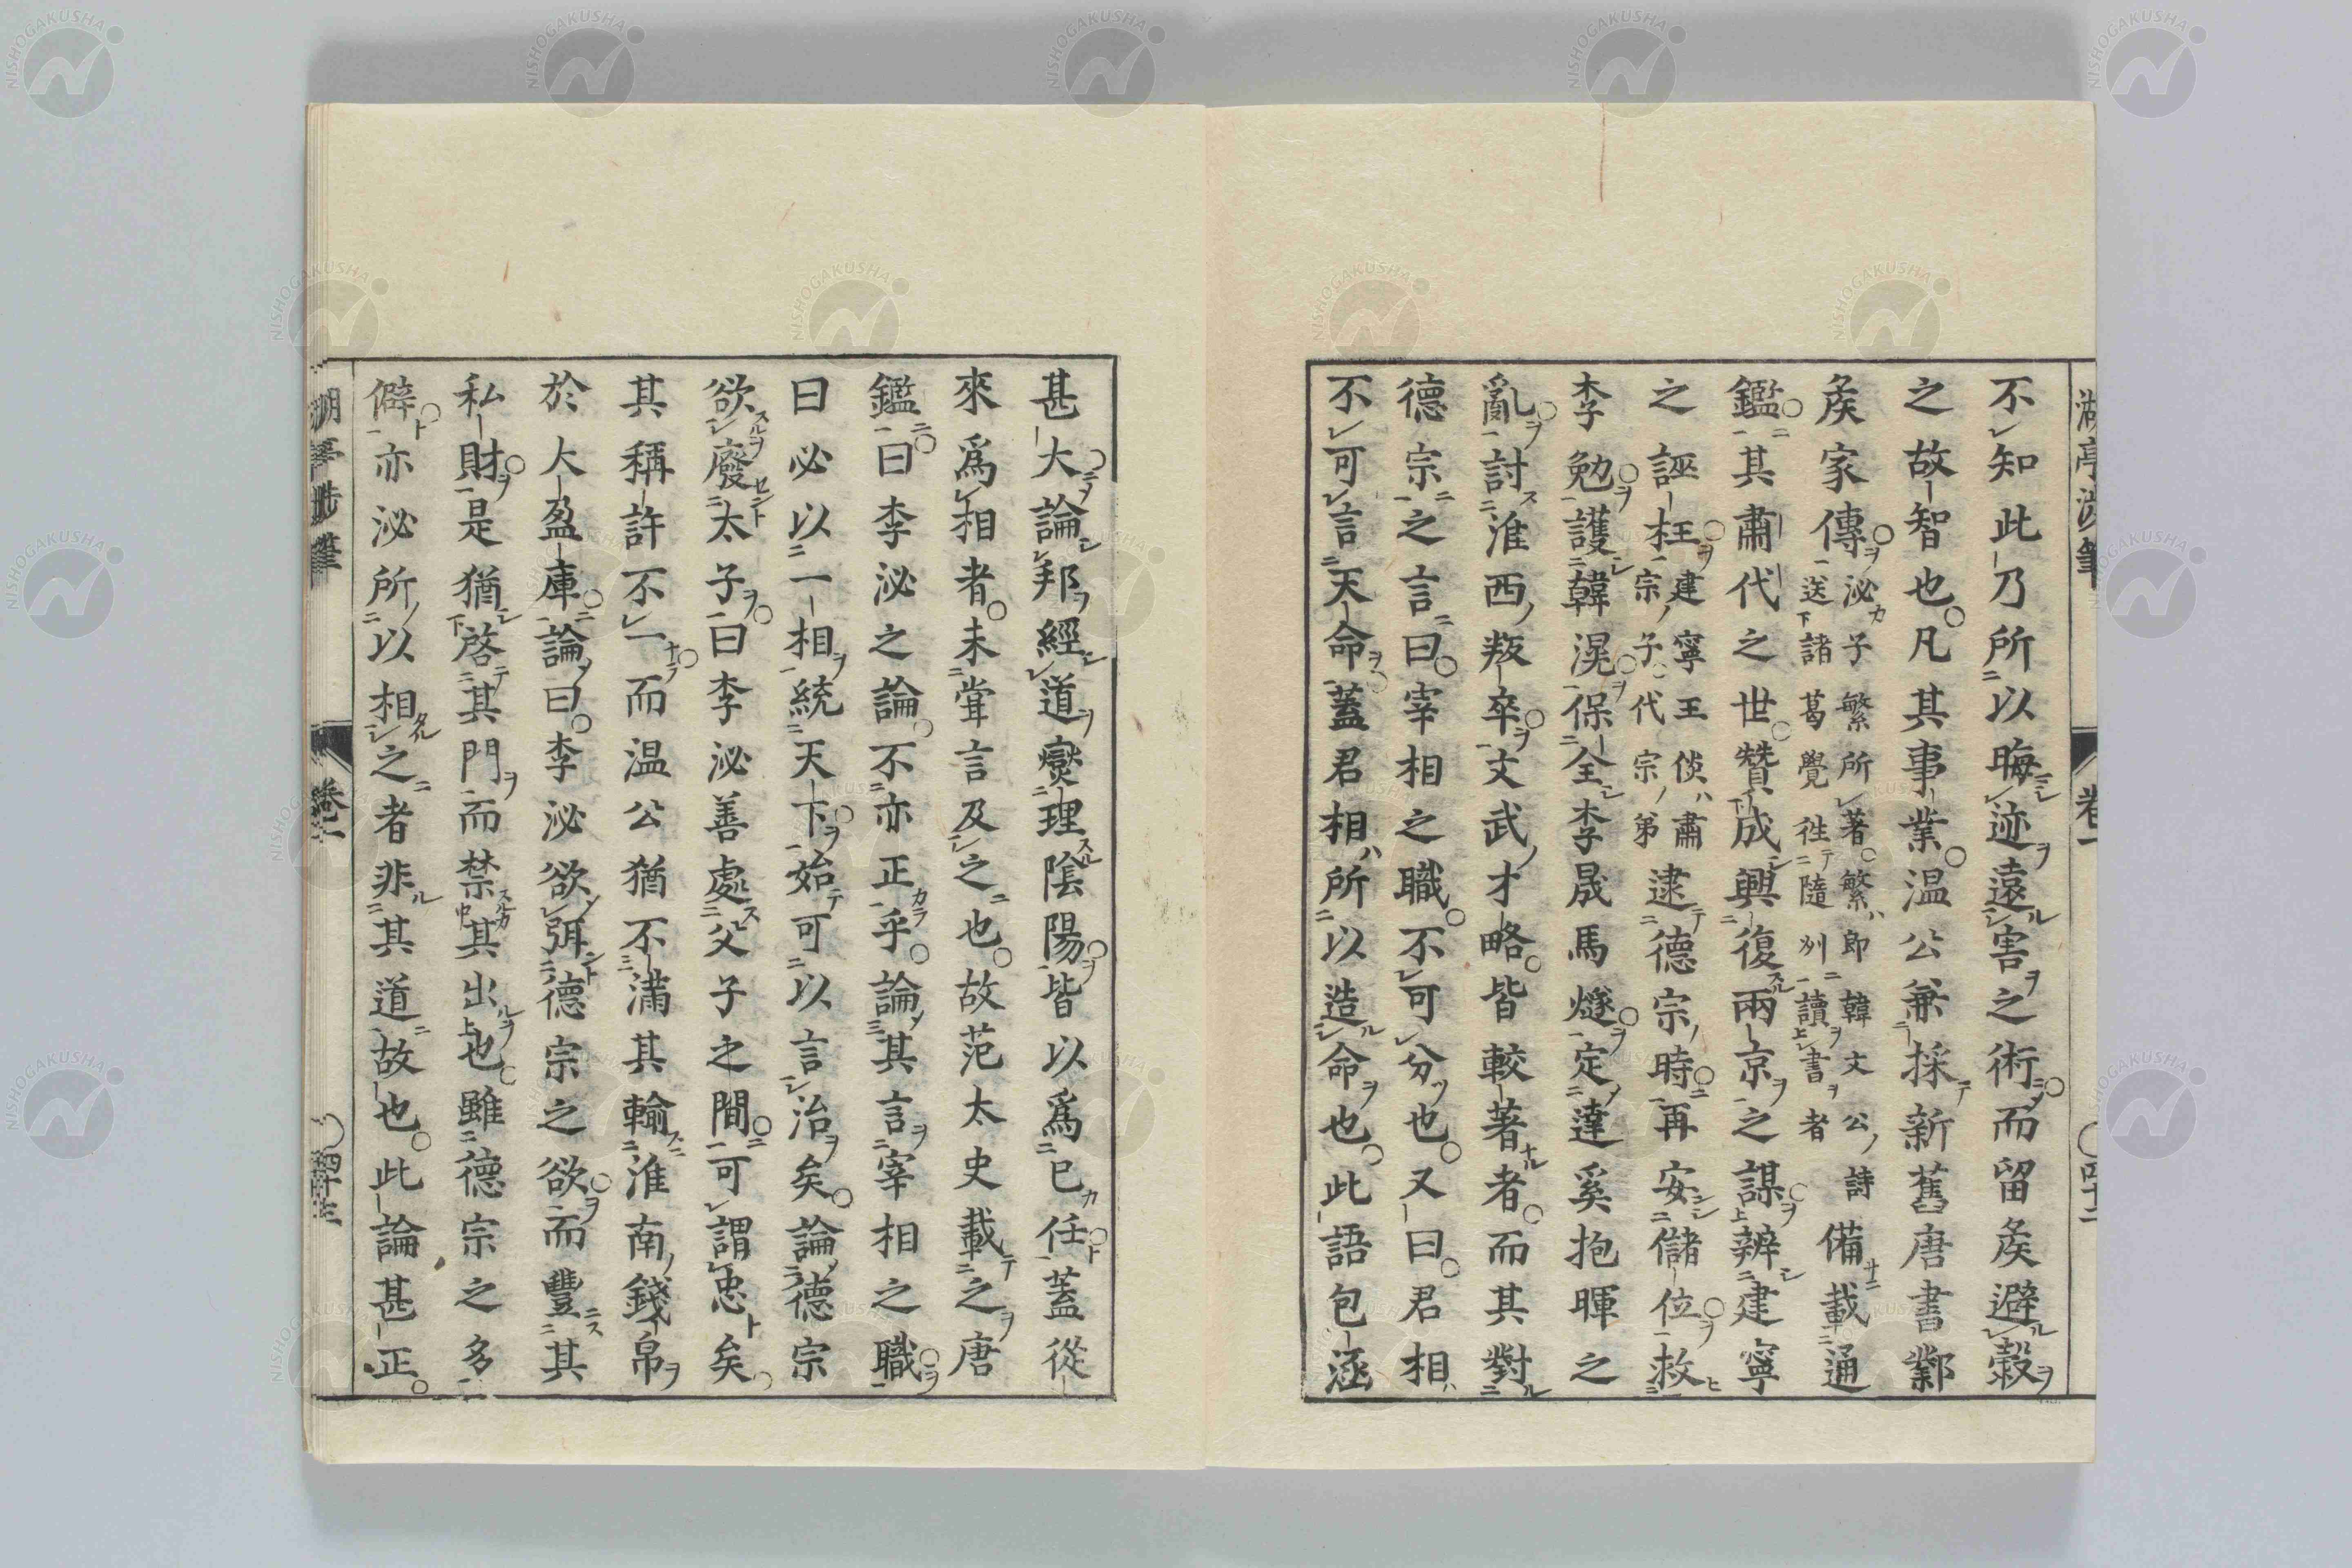 不知此乃所以晦迹遠害之術而留矦避穀
之故智也凡其事業温公兼採新舊唐書鄴
矦家傳泌子繁所著繁即韓文公詩送諸葛覺徃隨州讀書者備載通
鑑其肅代之世贊成興復兩京之謀辨建寧
之誣枉建寧王倓肅宗子代宗弟逮德宗時再安儲位救
李勉護韓滉保全李晟馬燧定達奚抱暉之
亂討淮西叛卒文武才略皆較著者而其對
德宗之言曰宰相之職不可分也又曰君相
不可言天命蓋君相所以造命也此語包涵
甚大論邦經道燮理陰陽皆以爲已任蓋從
來爲相者未甞言及之也故范太史載之唐
鑑曰李泌之論不亦正乎論其言宰相之職
曰必以一相統天下始可以言治矣論德宗
欲廢太子曰李泌善處父子之間可謂忠矣
其稱許不一而温公猶不滿其輸淮南錢帛
於大盈庫論曰李泌欲弭德宗之欲而豐其
私財是猶啓其門而禁其出也雖德宗之多
僻亦泌所以相之者非其道故也此論甚正
卷一